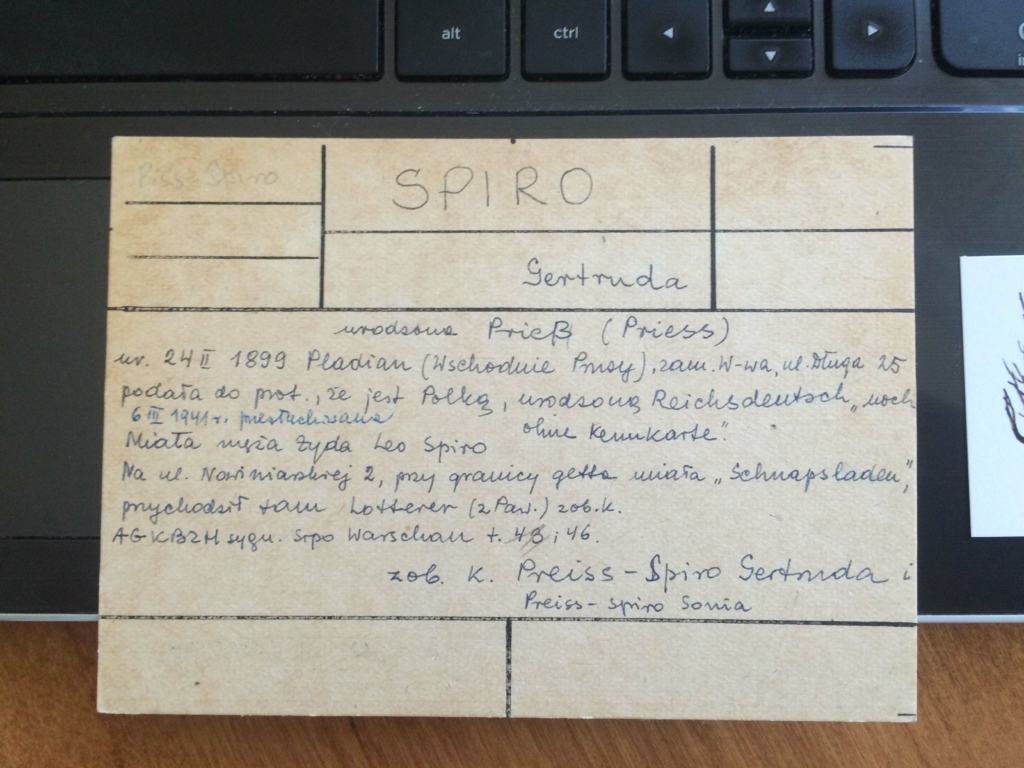 alt
ctrl
Piss-Spiro
SPIRO
Gertruda
urodzona Prieß (Priess)
ur. 24 II 1899 Pladian (Wschodnie Prusy), zam. W-wa, ul. Długa 25
podała do prot., że jest Polką, urodzoną Reichsdeutsch „noch
6 III 1941 r. przesłuchiwana
ohne Kennkarte".
Miała męża Żyda Leo Spiro
Na ul. Nowiniarskiej 2, przy granicy getta miała „Schnapsladen",
przychodził tam Lotterer (z Paw.) zob. k.
AGKBZH sygn. Sipo Warschau t. 43 i 46.
zob. k. Preiss-Spiro Gertruda i
Preiss-Spiro Sonia